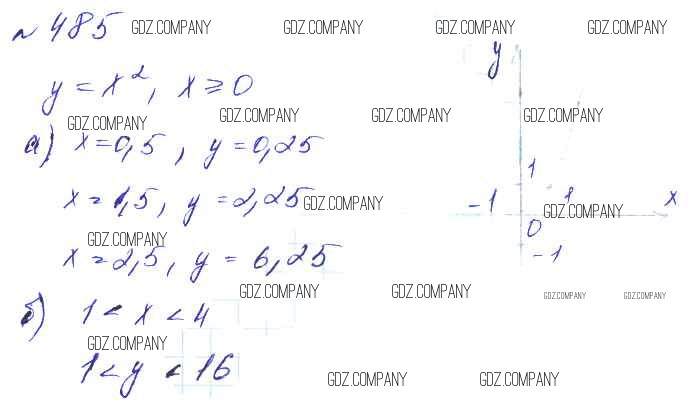 № 485 GDZ.COMPANY GDZ.COMPANY GDZ.COMPANY GDZ.COMPANY
y
y = x², x ≥ 0
GDZ.COMPANY GDZ.COMPANY GDZ.COMPANY GDZ.COMPANY
а) x = 0,5, y = 0,25
1
x = 1,5, y = 2,25 GDZ.COMPANY -1 1 x
GDZ.COMPANY
0
GDZ.COMPANY
x = 2,5, y = 6,25 -1
GDZ.COMPANY GDZ.COMPANY GDZ.COMPANY GDZ.COMPANY
б) 1 < x < 4
GDZ.COMPANY
1 < y < 16 GDZ.COMPANY GDZ.COMPANY